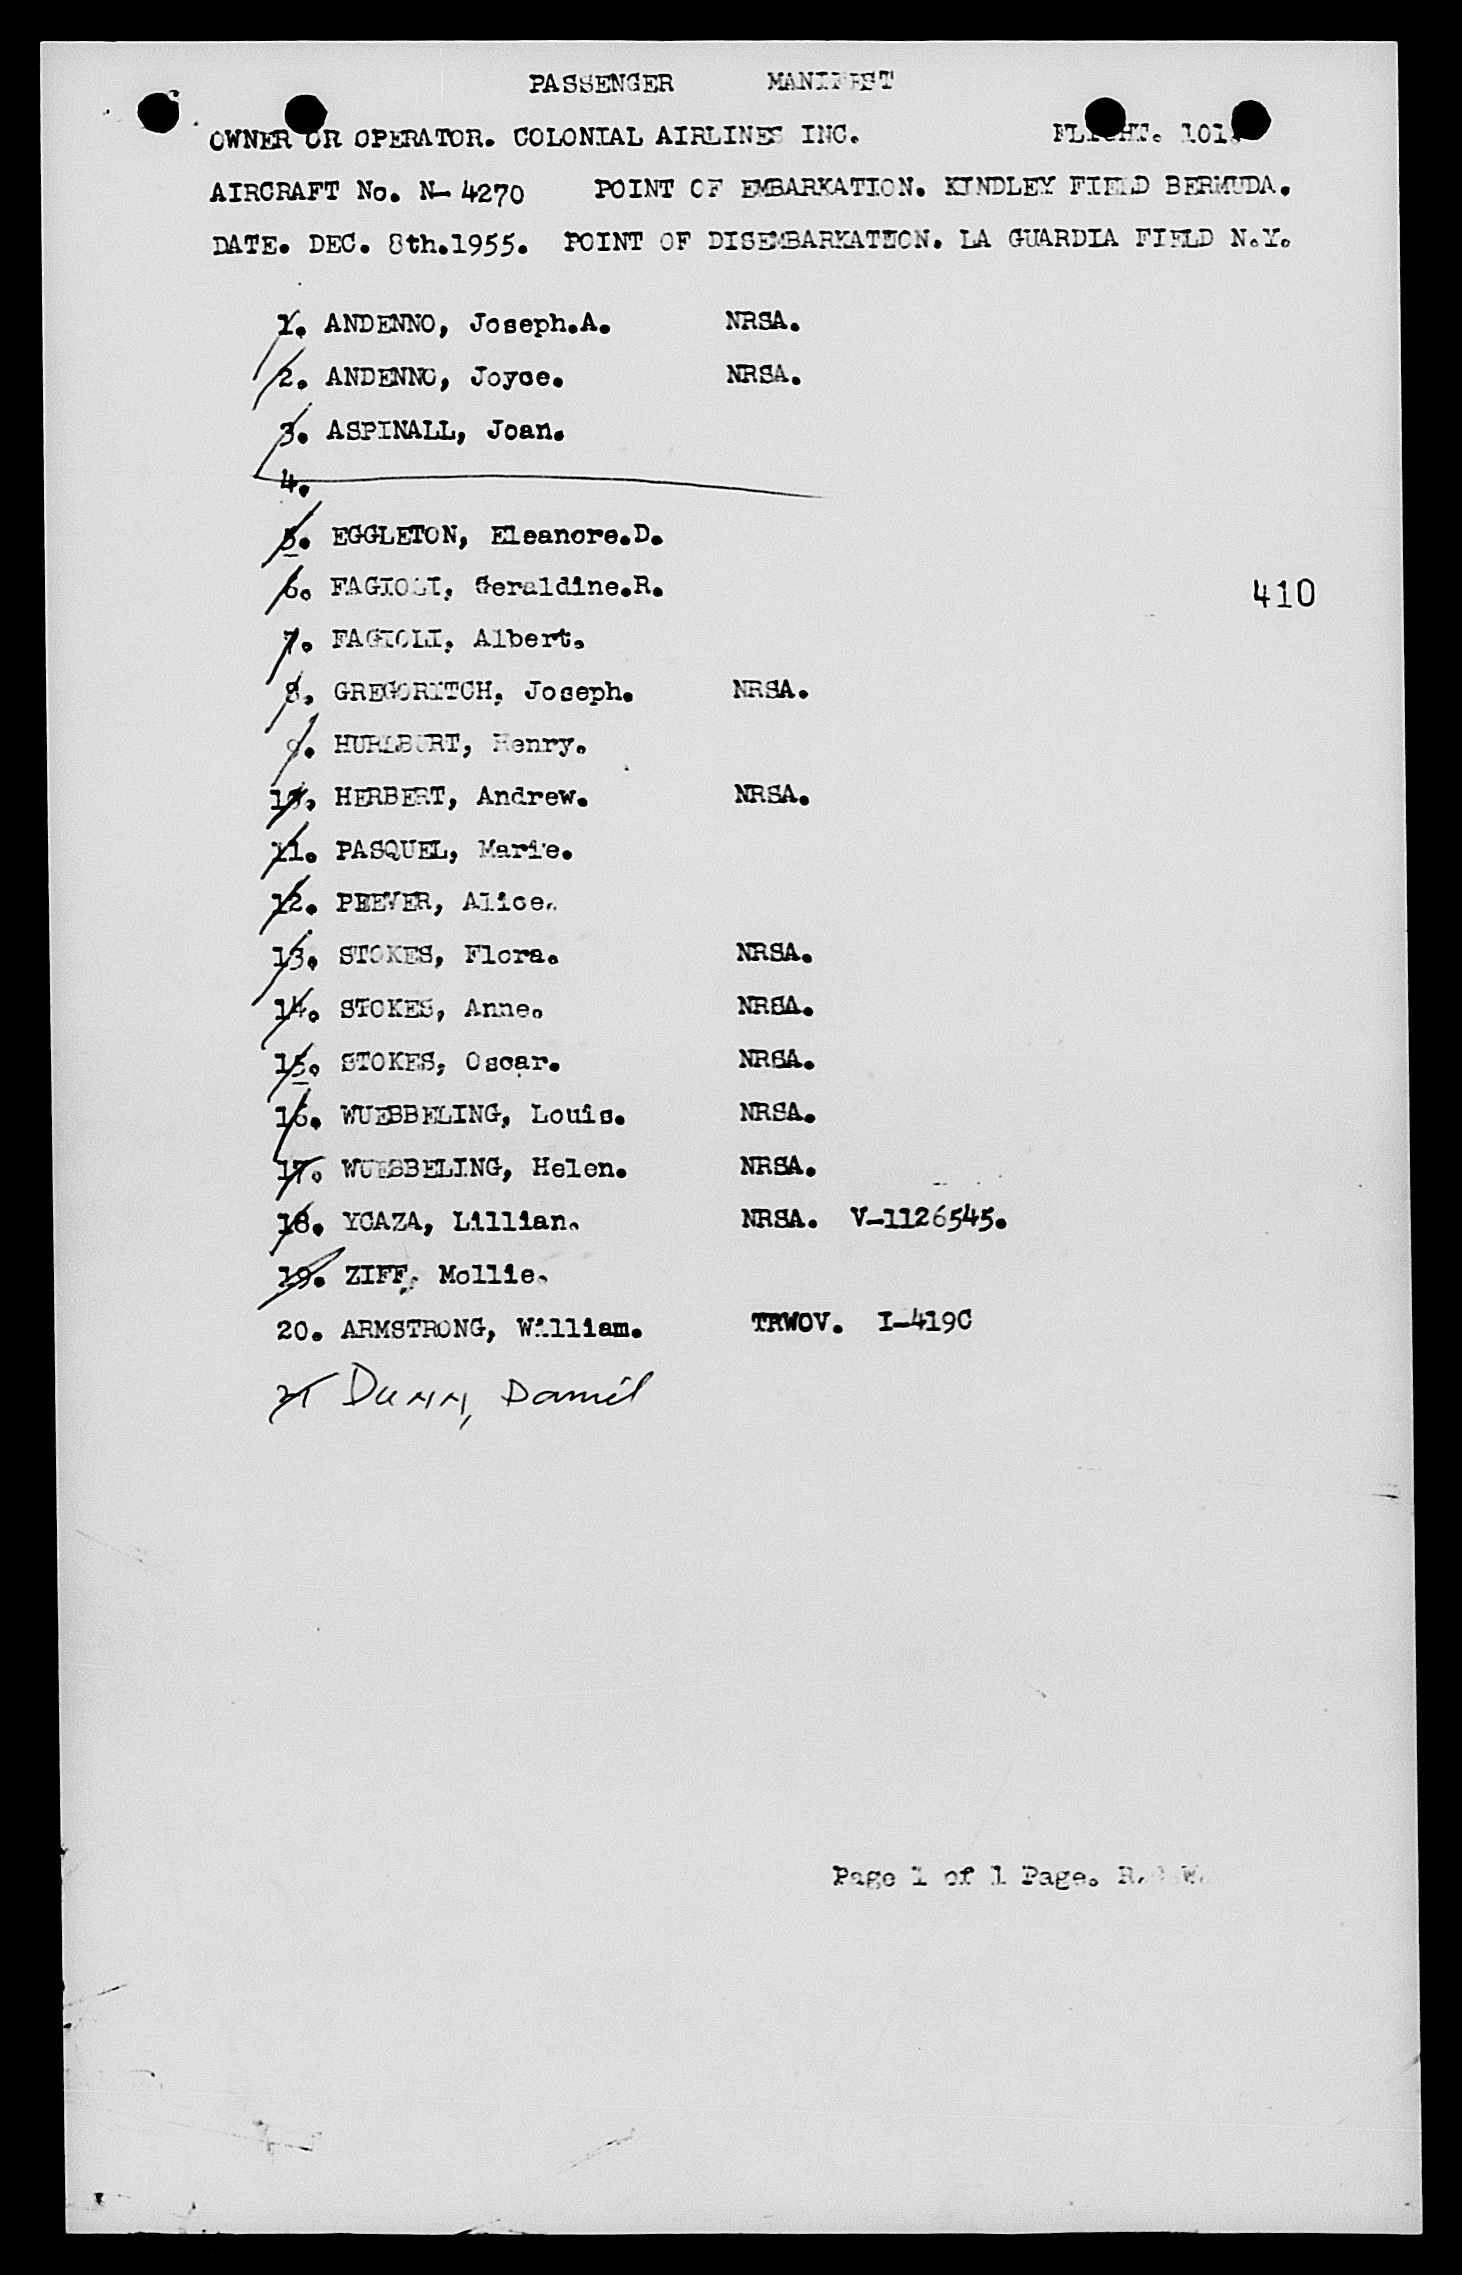 PASSENGER MANIFEST
OWNER OR OPERATOR. COLONIAL AIRLINES INC. FLIGHT.
AIRCRAFT No. N-4270 POINT OF EMBARKATION. KINDLEY FIELD BERMUDA.
DATE. DEC. 8th.1955. POINT OF DISEMBARKATION. LA GUARDIA FIELD N.Y.
1. ANDENNO, Joseph.A. NRSA.
2. ANDENNO, Joyce. NRSA.
3. ASPINALL, Joan.
4.
5. EGGLETON, Eleanore.D.
6. FAGIOLI, Geraldine.R.
410
7. FAGIOLI, Albert.
8. GREGORITCH, Joseph. NRSA.
9. HURLBURT, Henry.
10. HERBERT, Andrew. NRSA.
11. PASQUEL, Marie.
12. PEEVER, Alice.
13. STOKES, Flora. NRSA.
14. STOKES, Anne. NRSA.
15. STOKES, Oscar. NRSA.
16. WUEBBELING, Louis. NRSA.
17. WUEBBELING, Helen. NRSA.
18. YCAZA, Lillian. NRSA. V-1126545.
19. ZIFF, Mollie.
20. ARMSTRONG, William. TRWOV. I-419C
21 Dunn, Daniel
Page 1 of 1 Page.